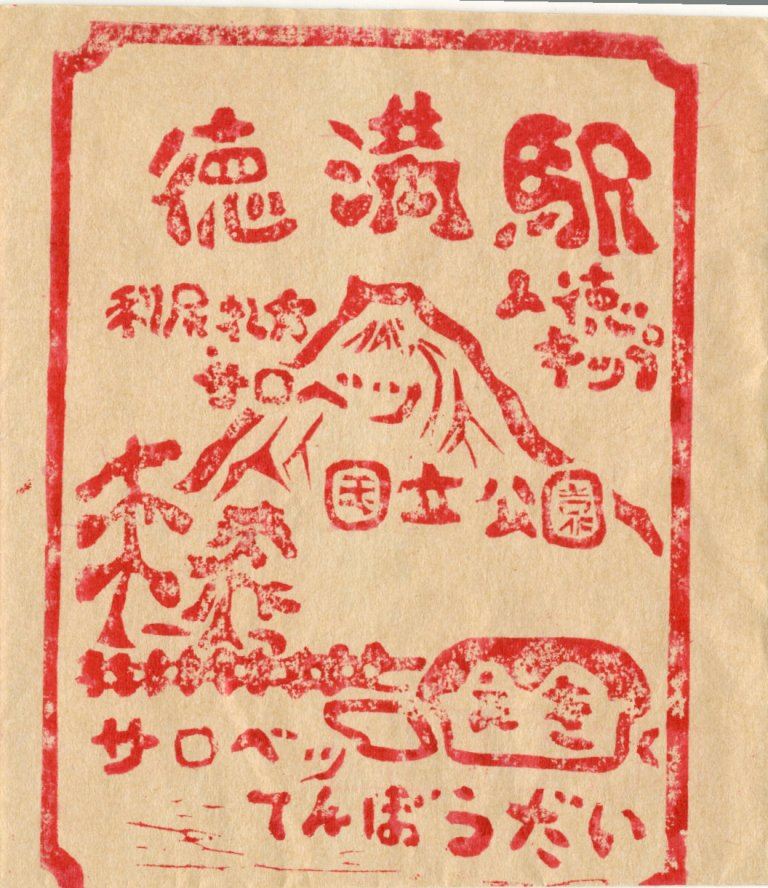 徳満駅
利尻礼文
サロベツ
国立公園
キップ
サロベツ
てんぼうだい